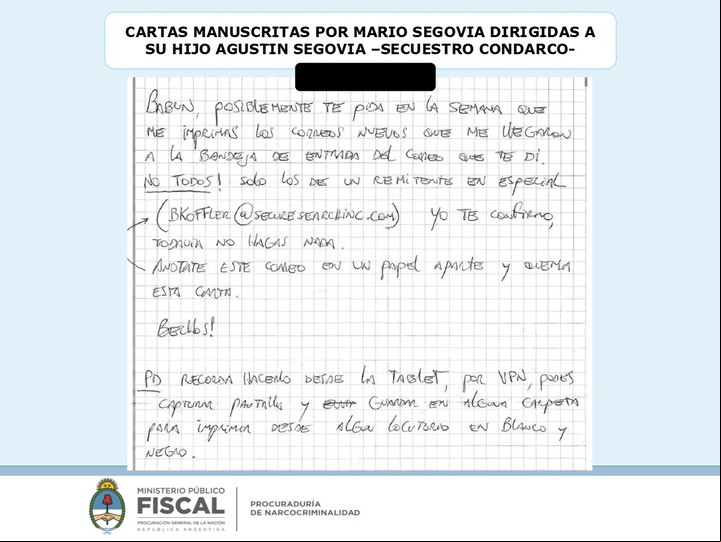 CARTAS MANUSCRITAS POR MARIO SEGOVIA DIRIGIDAS A
SU HIJO AGUSTIN SEGOVIA –SECUESTRO CONDARCO-
BABUN, POSIBLEMENTE TE PIDA EN LA SEMANA QUE
ME IMPRIMAS LOS CORREOS NUEVOS QUE ME LLEGARON
A LA BANDEJA DE ENTRADA DEL CORREO QUE TE DI.
NO TODOS! SOLO LOS DE UN REMITENTE EN ESPECIAL
(BKOFFLER@SECURESEARCHINC.COM) YO TE CONFIRMO,
TODAVIA NO HAGAS NADA.
ANOTATE ESTE CORREO EN UN PAPEL APARTE Y QUEMA
ESTA CARTA.
BECHOS!
PD RECORDA HACERLO DESDE LA TABLET, POR VPN, PODES
CAPTURAR PANTALLA Y GUARDAR EN ALGUNA CARPETA
PARA IMPRIMIR DESDE ALGUN LOCUTORIO EN BLANCO Y
NEGRO.
MINISTERIO PÚBLICO
FISCAL
PROCURACIÓN GENERAL DE LA NACIÓN
REPÚBLICA ARGENTINA
PROCURADURÍA
DE NARCOCRIMINALIDAD